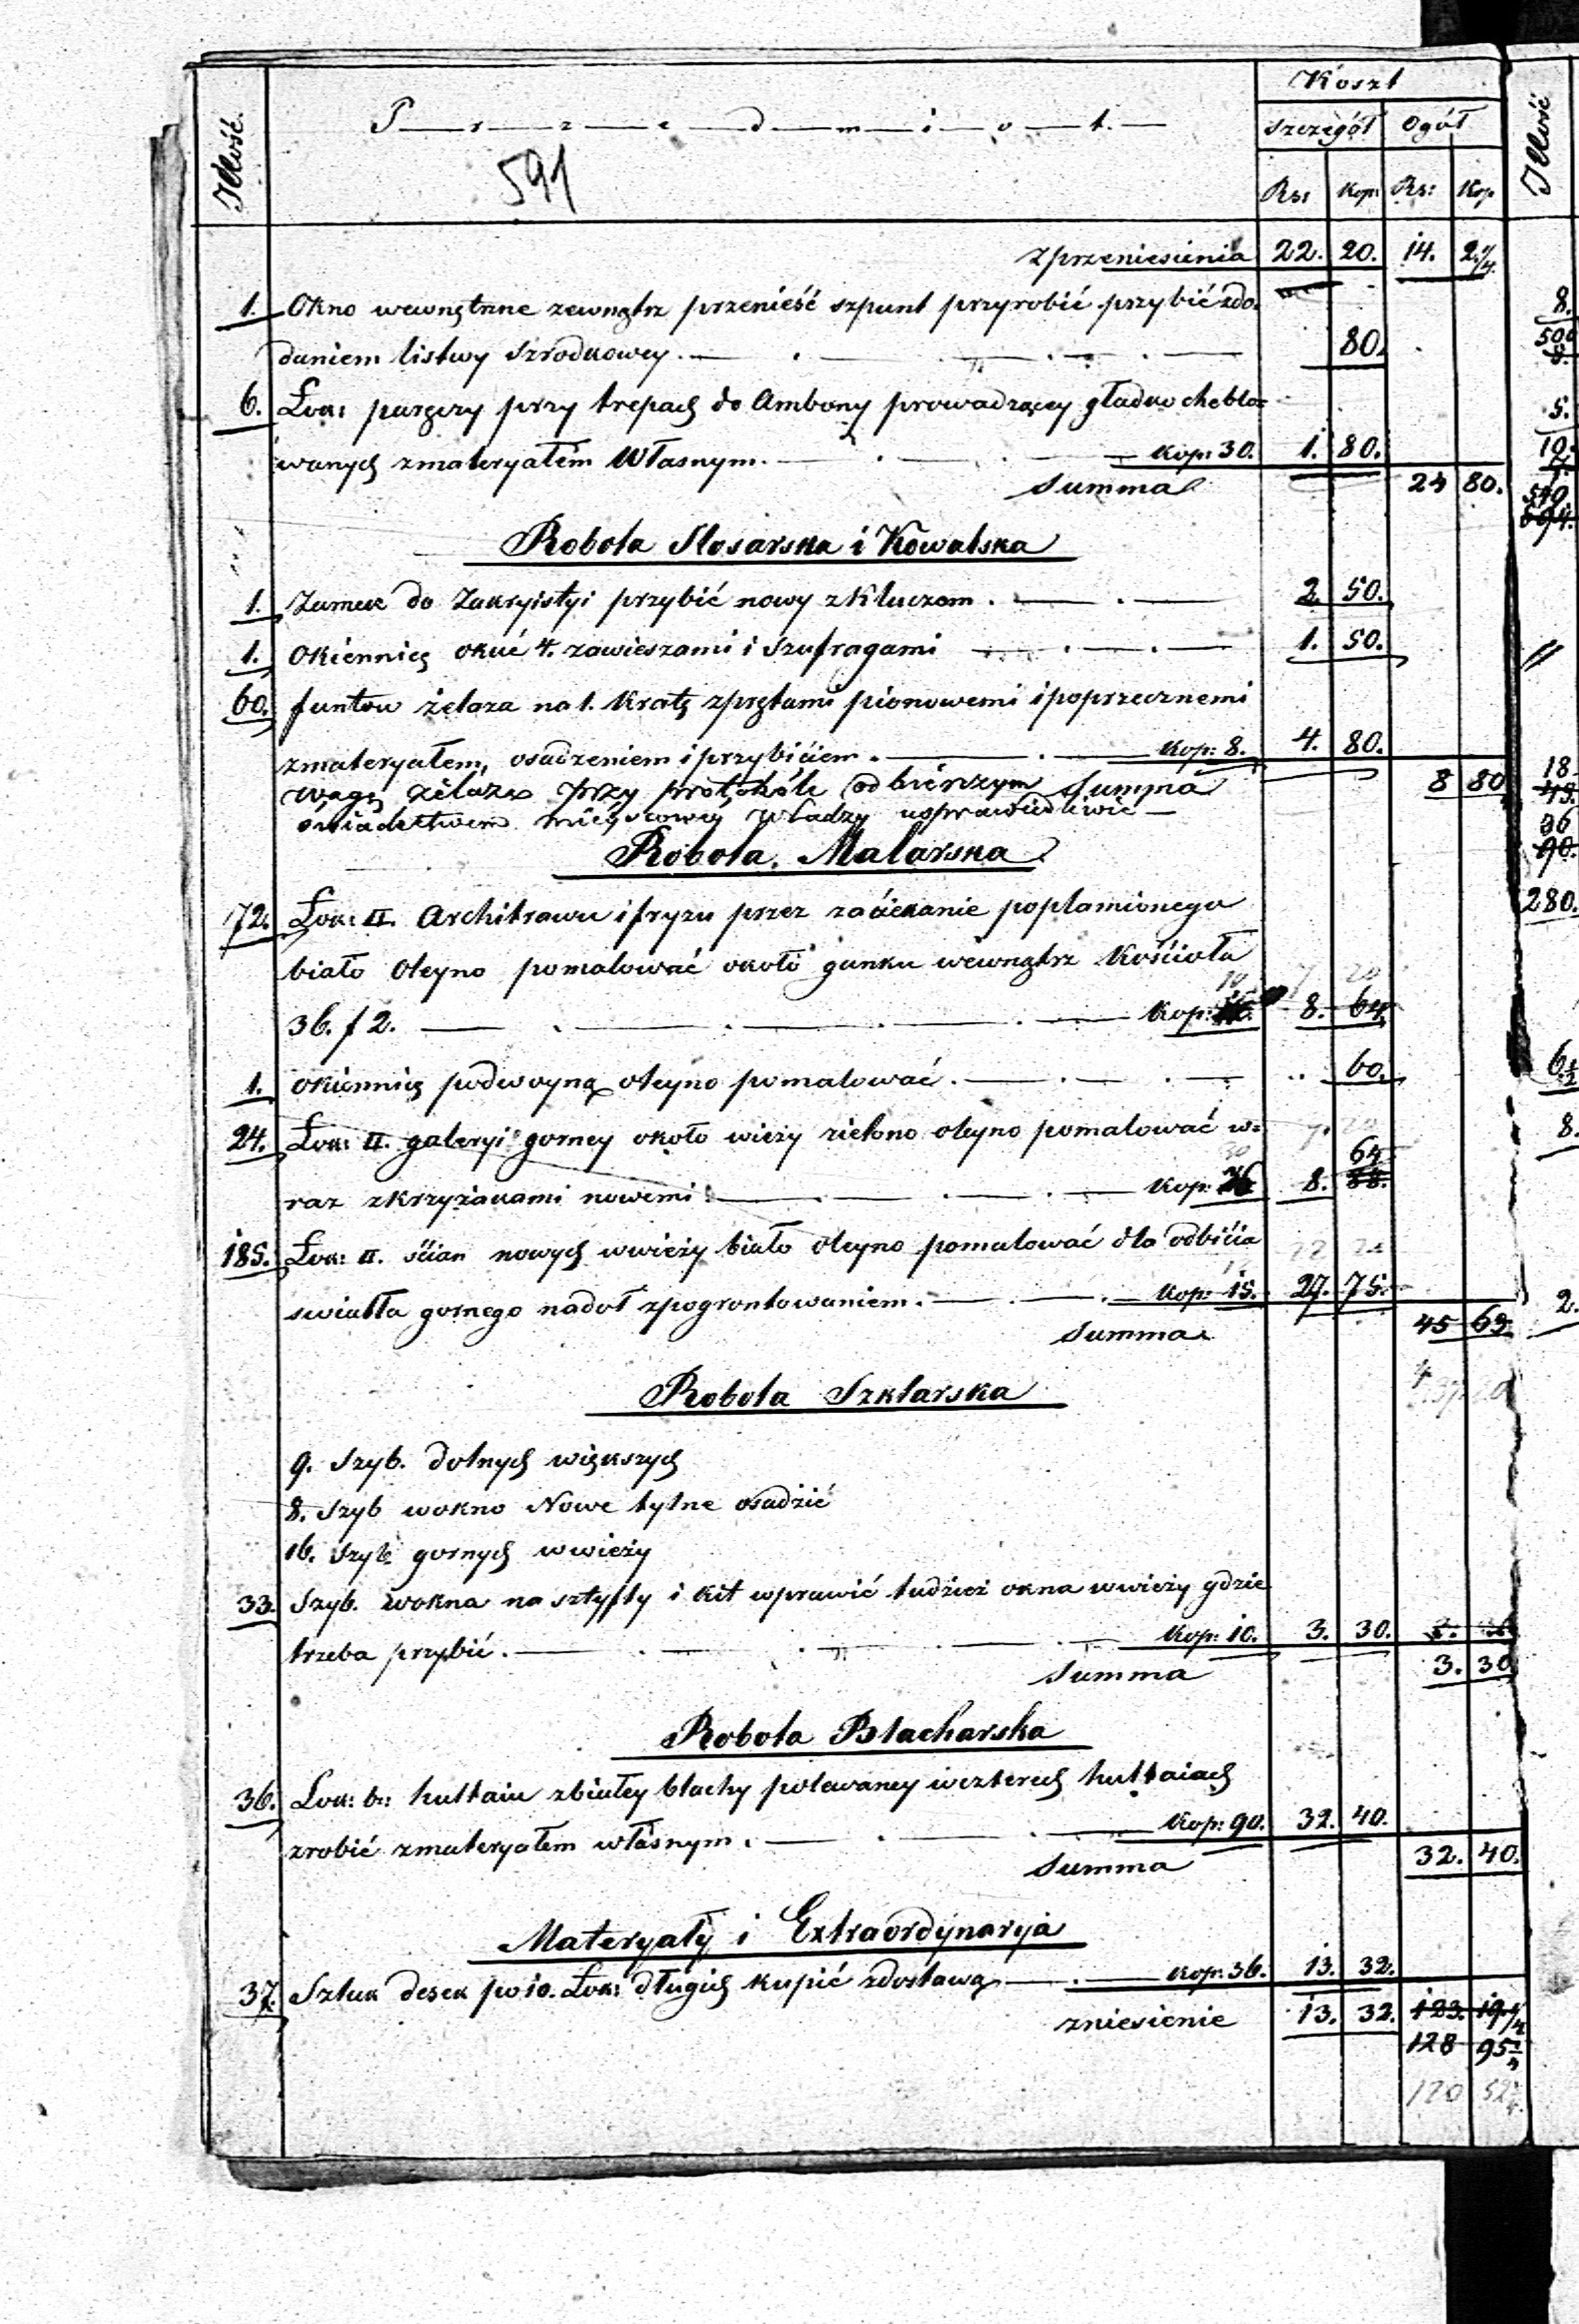 Ilość.
P r z e d m i o t.
Koszt
Szczegół Ogół
Rs: Kop: Rs: Kop
591
z przeniesienia 22. 20. 14. 2 1/4
1. Okno wewnętrzne zewnątrz przenieść szpunt przyrobić przybić zdo-
daniem listwy szrodkowey. 80.
6. Łok: poręczy przy trepach do Ambony prowadzący gładko cheblo=
wanych zmateryałem Własnym. Kop: 30. 1. 80.
Summa 24 80.
Robota Slosarska i Kowalska
1. Zamek do Zakrystyi przybić nowy zkluczem. 2. 50.
1. Okiennicę okuć 4. zawieszami i Szufragami 1. 50.
60. funtów żelaza na 1. Kratę zprętami pionowemi i poprzecznemi
zmateryałem, osadzeniem i przybiciem. Kop: 8. 4. 80.
Wagę żelaza przy protokóle odbiérczym Summa 8 80
swiadectwem miéyscowéy Władzy usprawiedliwić
Robota Malarska
72. Łok: II. Architrawu i fryzu przez zaciekanie poplamionego
biało oleyno pomalować około ganku wewnątrz Kościoła
36. f 2. Kop: 8. 64.
1. okiennicę podwoyną oleyno pomalować. 60.
24. Łok: II. galeryi gorney około wieży zielono oleyno pomalować w=
raz zkrzyżakami nowemi Kop: 36 8. 64
185. Łok: II. ścian nowych wwieży biało oleyno pomalować dla odbicia
swiatła gornego nadoł zpogrontowaniem. Kop: 15. 27. 75.
Summa 45 63
Robota Szklarska
9. Szyb. dolnych większych
8. Szyb wokno Nowe tylne osadzić
16. Szyb gornych wwieży
33. Szyb. wokna na sztyfty i kit wprawić tudzież okna wwieży gdzie
trzeba przybić. Kop: 10. 3. 30.
Summa 3. 30
Robota Blacharska
36. Łok: b: huttaiu zbiałey blachy polewaney wczterech huttaiach
zrobić zmateryałem własnym. Kop: 90. 32. 40.
Summa 32. 40.
Materyały i Extraordynaryja
37. Sztuk desek po 10. Łok: długich kupić zdostawą Kop: 36. 13. 32.
zniesienie 13. 32. 123. 19 1/4
128 95 1/4
120 52 1/4
Ilość